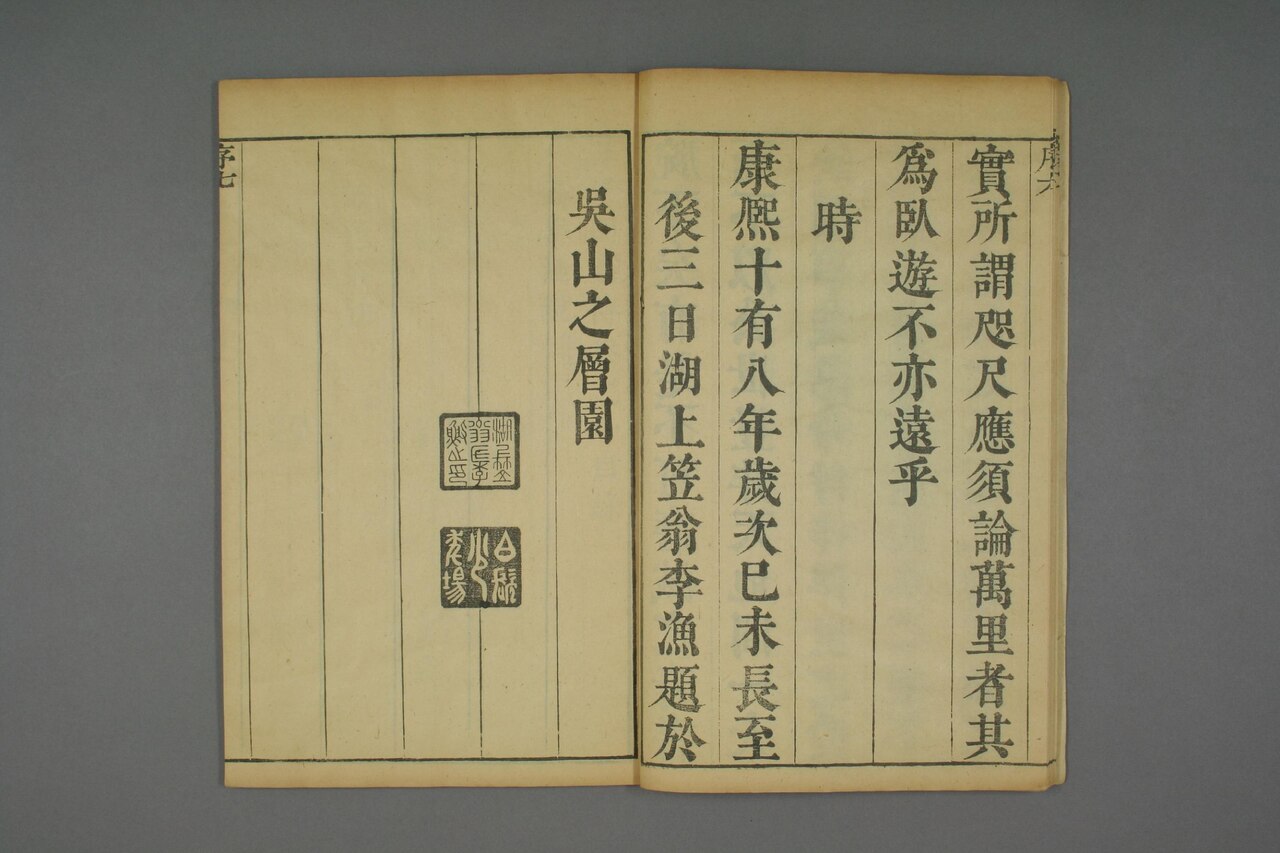 實所謂咫尺應須論萬里者其
爲臥遊不亦遠乎
時
康熈十有八年歲次巳未長至
後三日湖上笠翁李漁題於
吳山之層園
序七